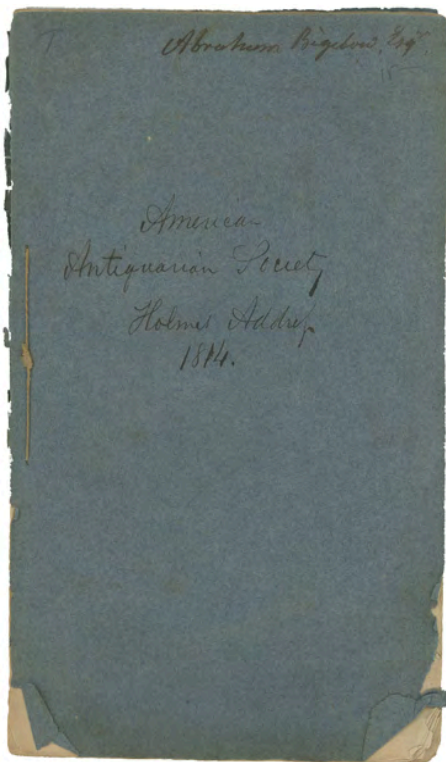 T
Abraham Bigelow, Esqr
American
Antiquarian Society
Holmes Address
1814.